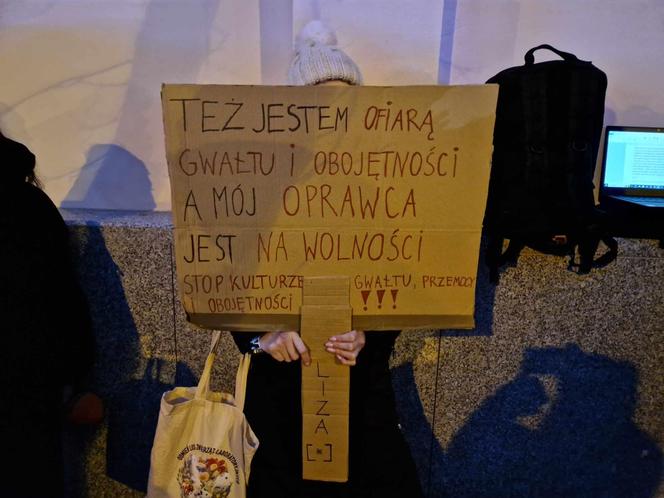 TEŻ JESTEM OFIARĄ
GWAŁTU I OBOJĘTNOŚCI
A MÓJ OPRAWCA
JEST NA WOLNOŚCI
STOP KULTURZE GWAŁTU, PRZEMOCY
I OBOJĘTNOŚCI !!!
LIZA